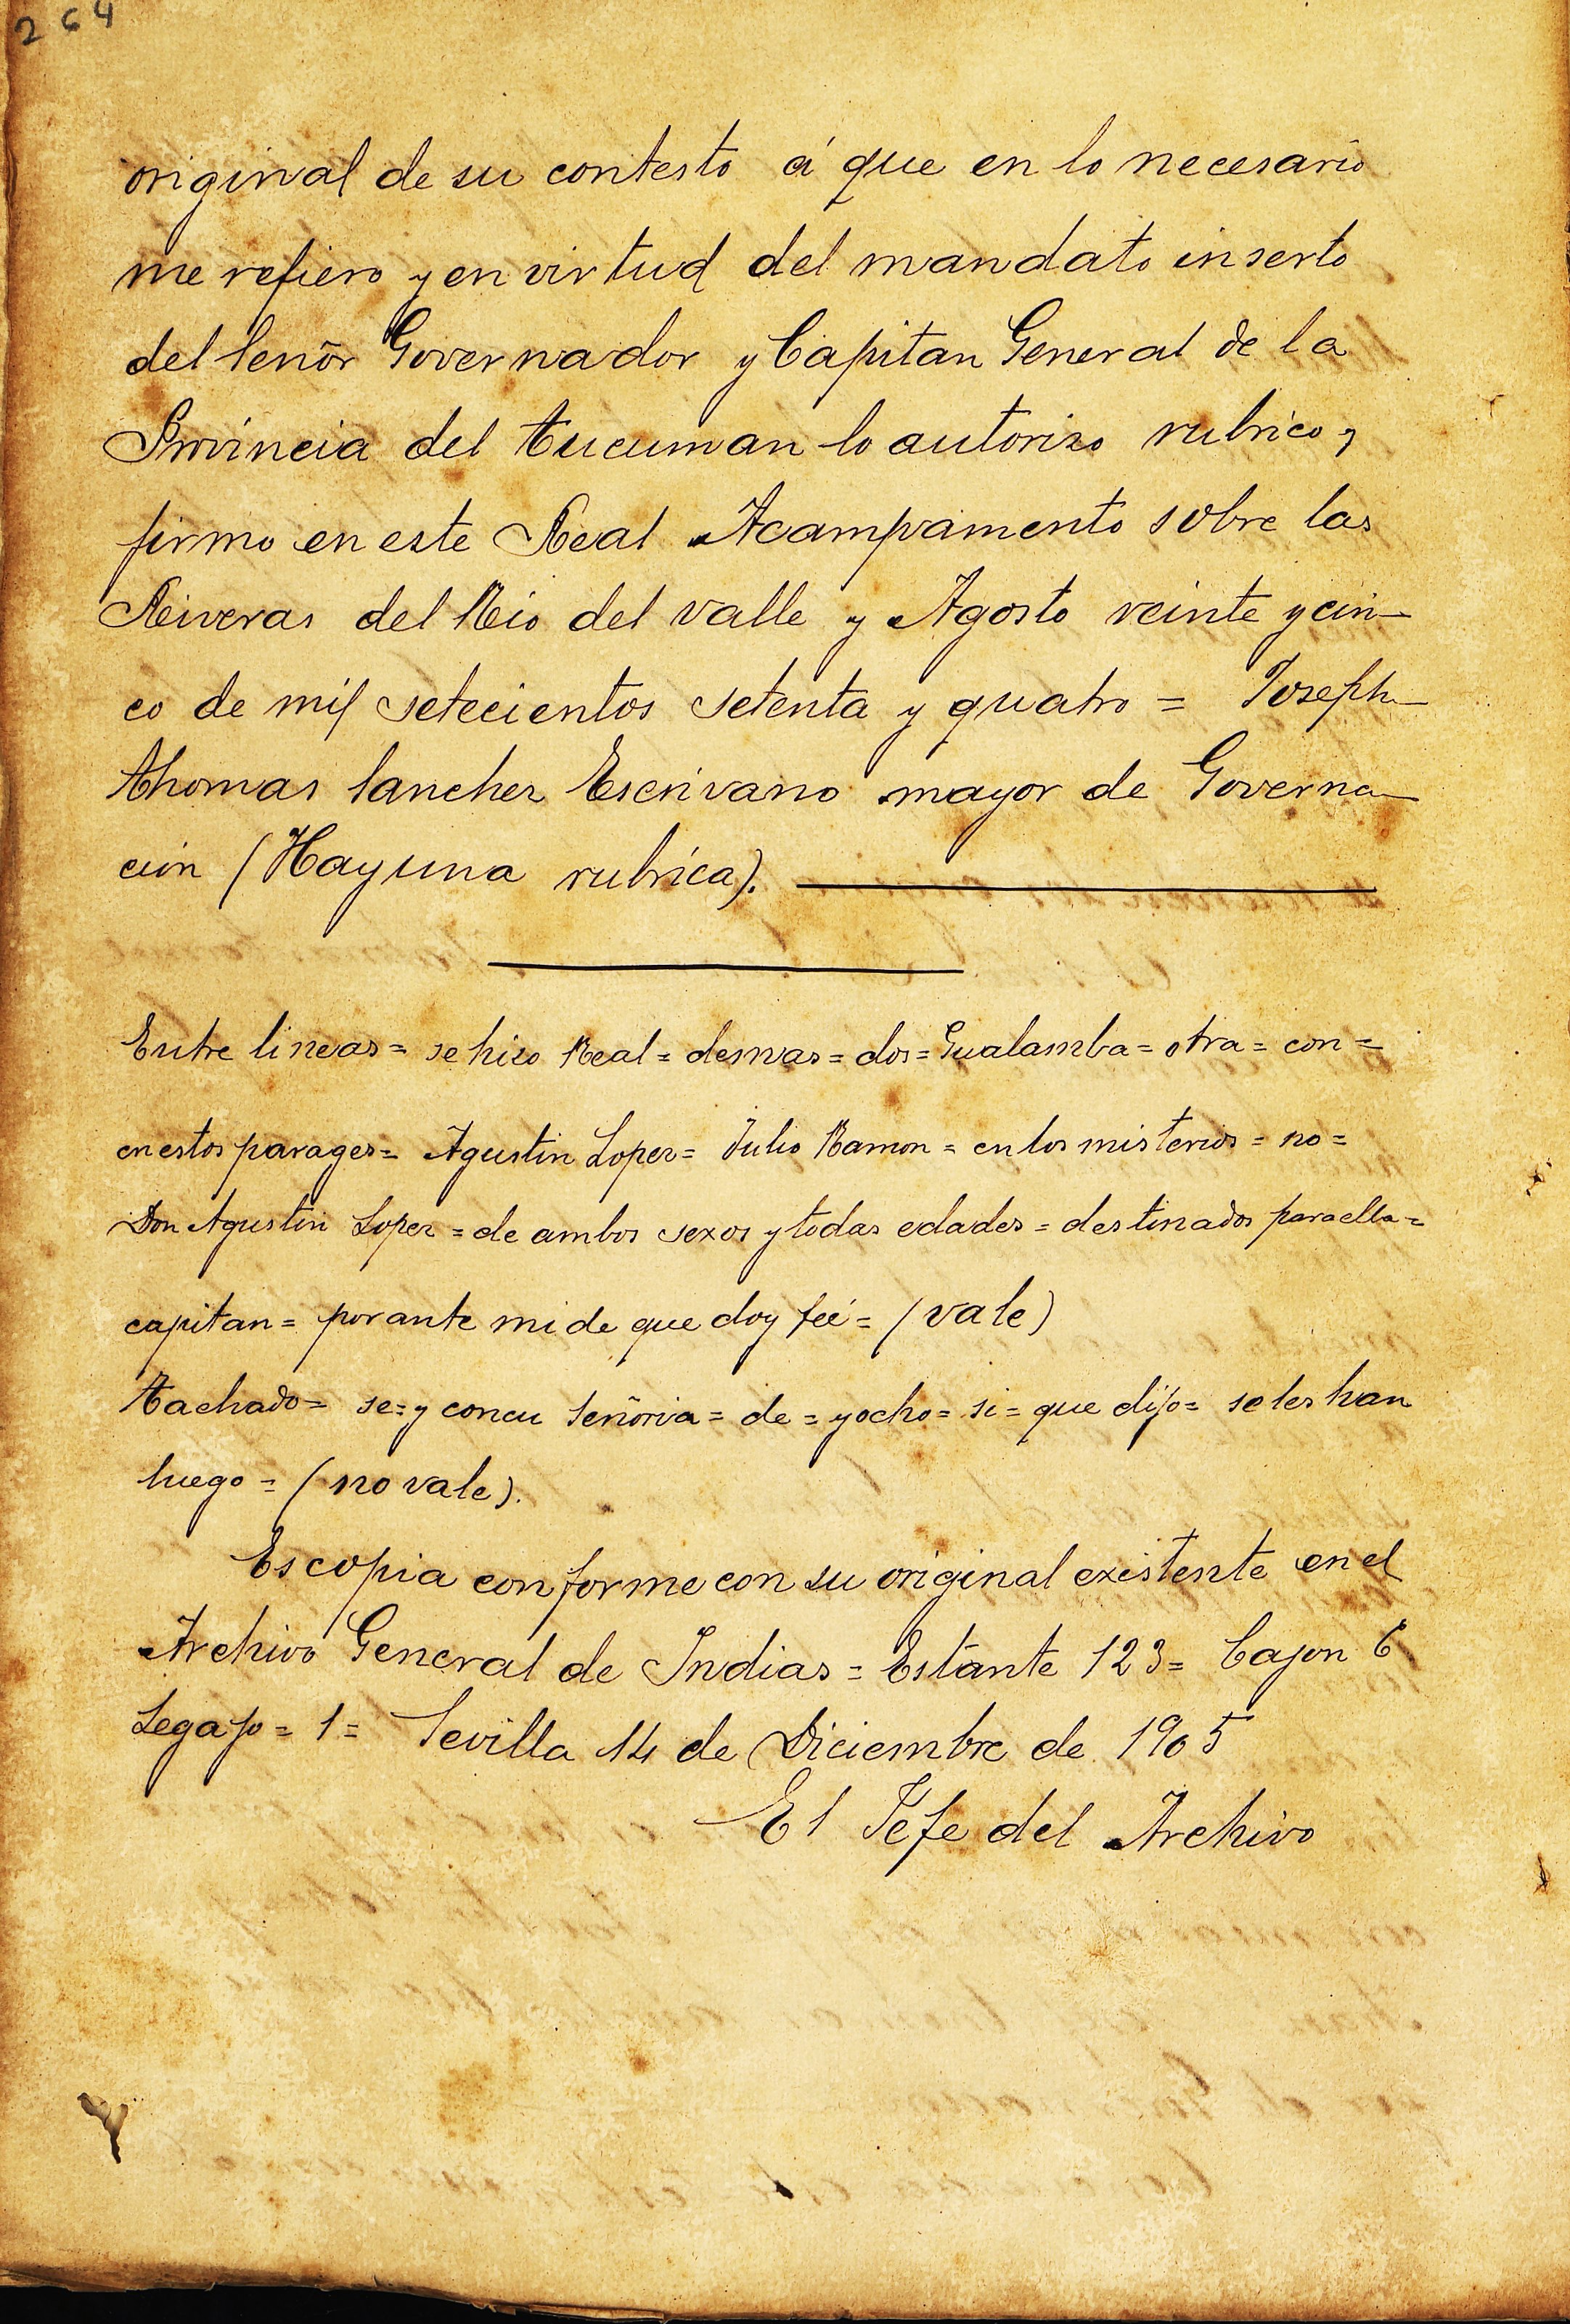 264
original de su contesto á que en lo necesario
me refiero y en virtud del mandato inserto
del Señor Governador y Capitan General de la
Provincia del Tucuman lo autorizo rubrico y
firmo en este Real Acampamento sobre las
Riveras del Rio del valle y Agosto veinte y cin-
co de mil setecientos setenta y quatro = Joseph
Thomas Sanchez Escrivano mayor de Governa-
cion (Hay una rubrica).
Entre lineas = se hizo Real = demas = dos = Gualamba = otra = con =
en estos parages = Agustin Lopez = Julio Ramon = en los misterios = no =
Don Agustin Lopez = de ambos sexos y todas edades = destinados para ella =
capitan = por ante mi de que doy feé = (vale)
Tachado = se = y con cu Señoria = de = y ocho = si = que dijo = se les han
luego = (no vale).
Es copia conforme con su original existente en el
Archivo General de Indias = Estante 123 = Cajon 6
Legajo = 1 = Sevilla 14 de Diciembre de 1905
El Jefe del Archivo